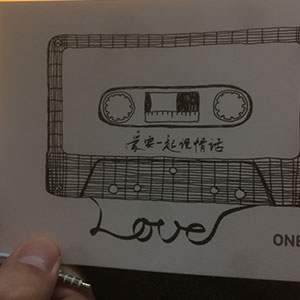 爱要一起说情话
Love
ONE